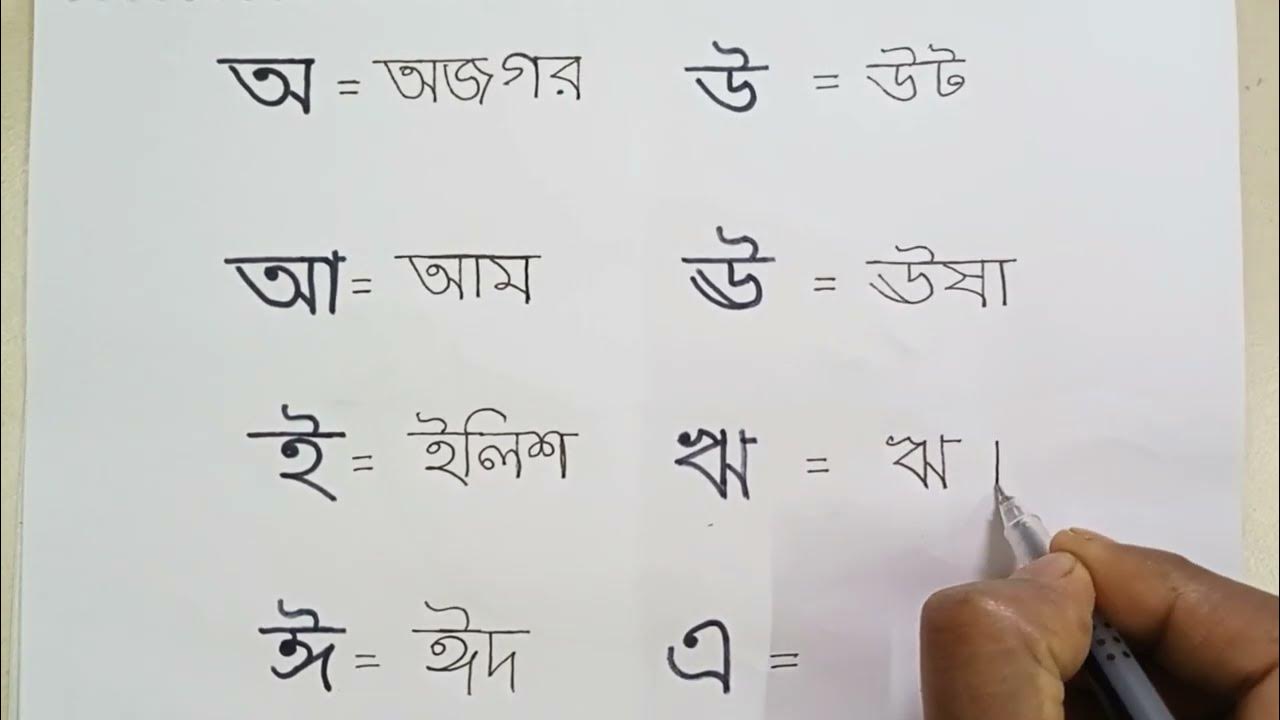 অ = অজগর
উ = উট
আ = আম
ঊ = ঊষা
ই = ইলিশ
ঋ = ঋ
ঈ = ঈদ
এ =